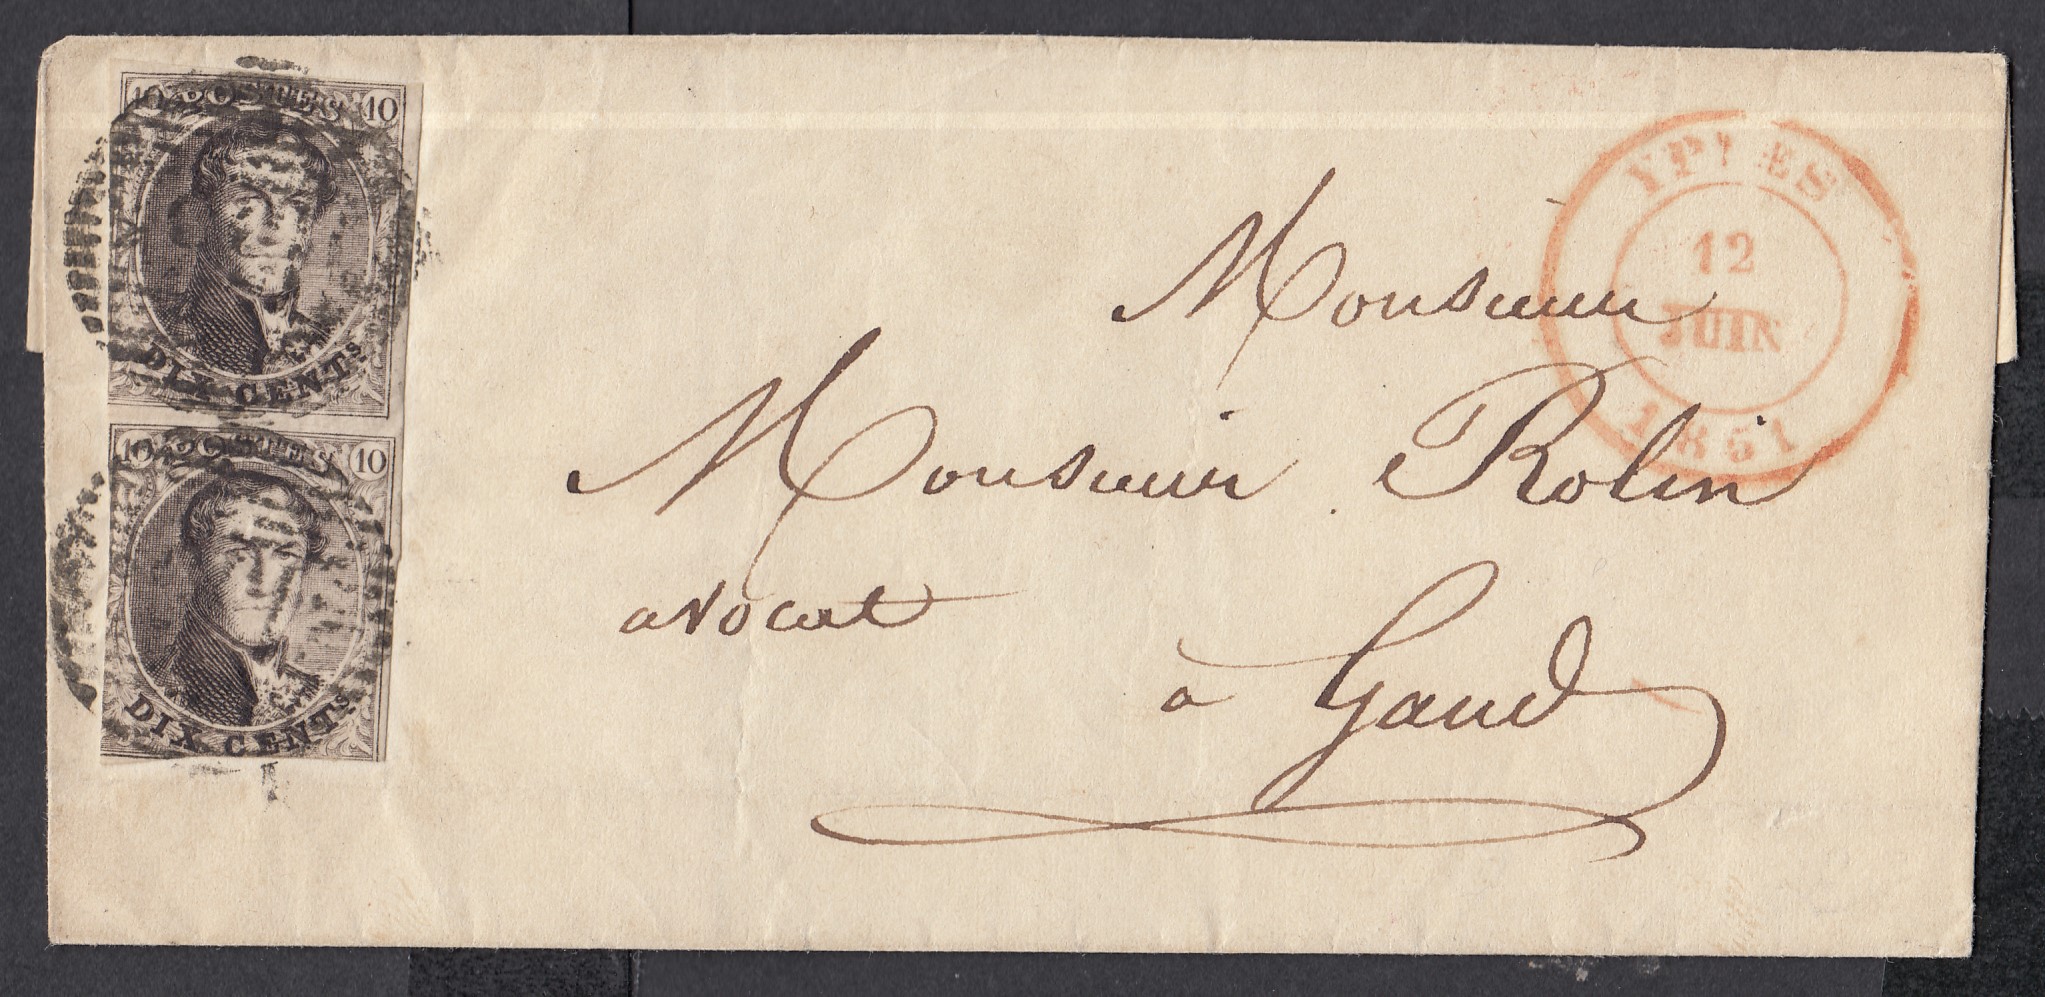 10 POSTES 10
DIX CENTS
10 POSTES 10
DIX CENTS
YPRES
12
JUIN
1851
Monsieur
Monsieur Rolin
avocat
à Gand